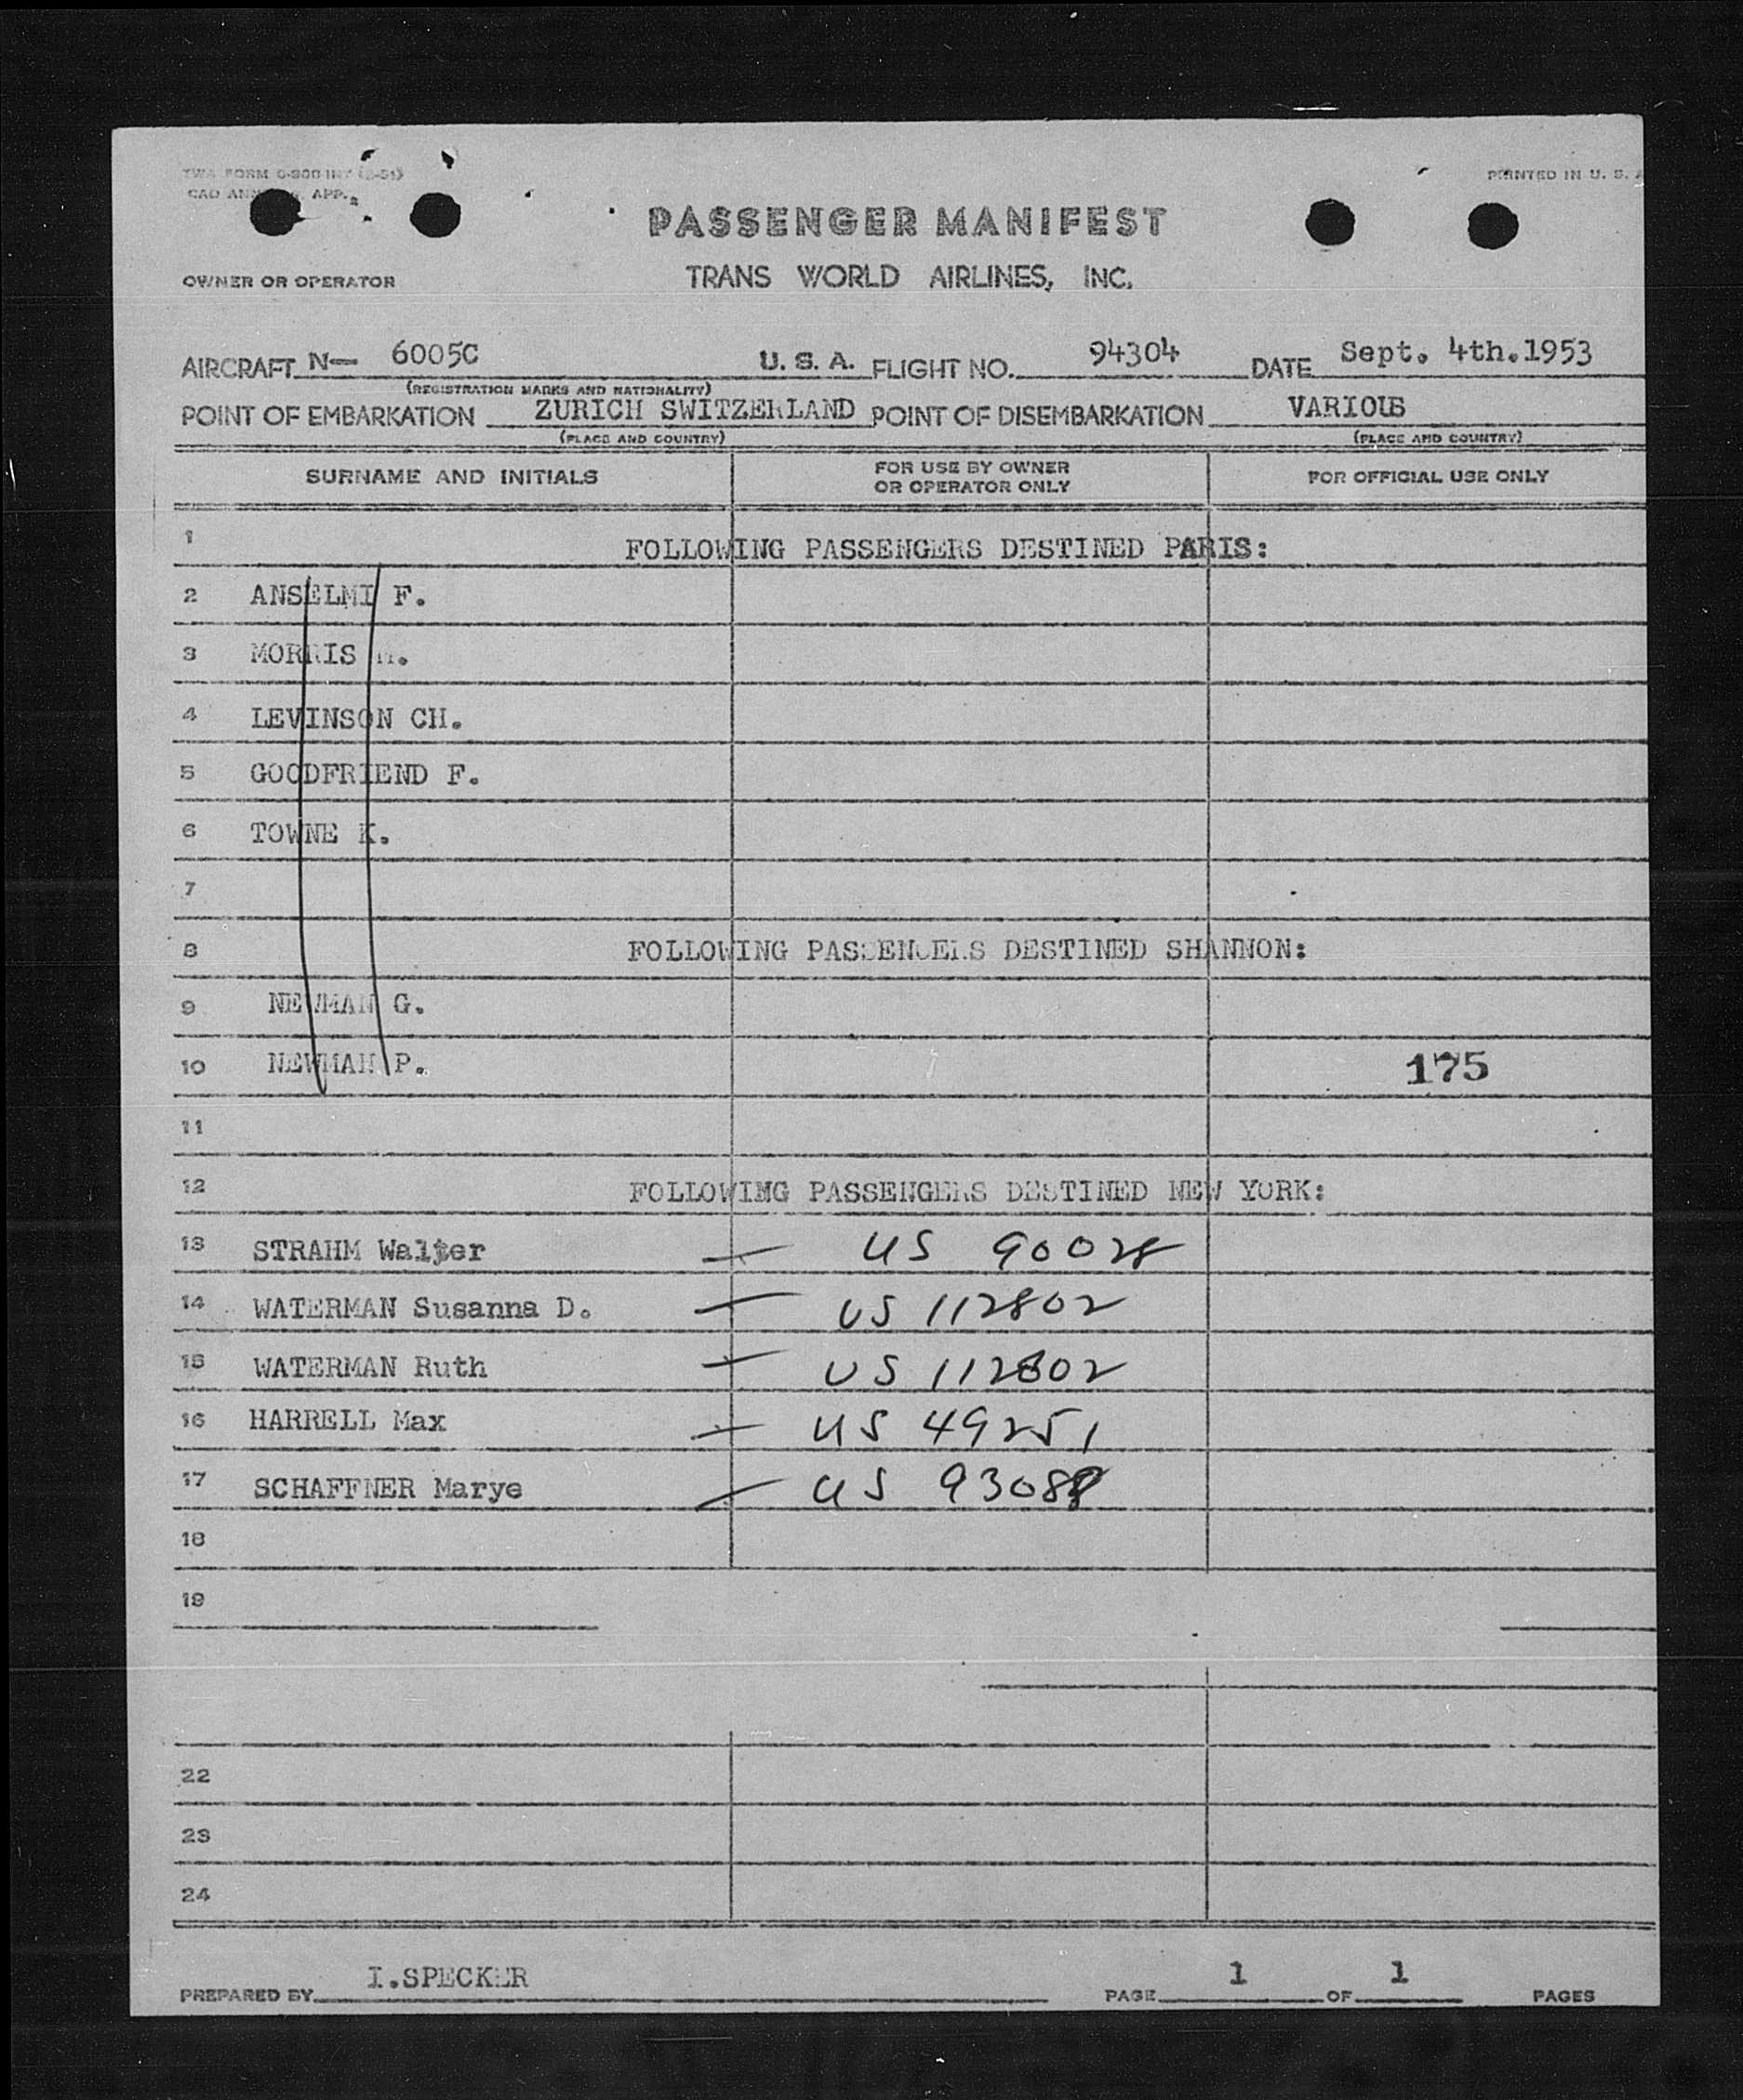 TWA FORM
CAO APP.
PRINTED IN U. S. A
PASSENGER MANIFEST
OWNER OR OPERATOR
TRANS WORLD AIRLINES, INC.
AIRCRAFT N— 6005C U. S. A. FLIGHT NO. 94304 DATE Sept. 4th.1953
(REGISTRATION MARKS AND NATIONALITY)
POINT OF EMBARKATION ZURICH SWITZERLAND POINT OF DISEMBARKATION VARIOUS
(PLACE AND COUNTRY) (PLACE AND COUNTRY)
SURNAME AND INITIALS FOR USE BY OWNER OR OPERATOR ONLY FOR OFFICIAL USE ONLY
1 FOLLOWING PASSENGERS DESTINED PARIS:
2 ANSELMI F.
3 MORRIS
4 LEVINSON CH.
5 GOODFRIEND F.
6 TOWNE K.
7
8 FOLLOWING PASSENGERS DESTINED SHANNON:
9 NEWMAN G.
10 NEWMAN P. 175
11
12 FOLLOWING PASSENGERS DESTINED NEW YORK:
13 STRAHM Walter US
14 WATERMAN Susanna D. US 112802
15 WATERMAN Ruth US 112802
16 HARRELL Max US 49251
17 SCHAFFNER Marye US
18
19
22
23
24
PREPARED BY I.SPECKER PAGE 1 OF 1 PAGES